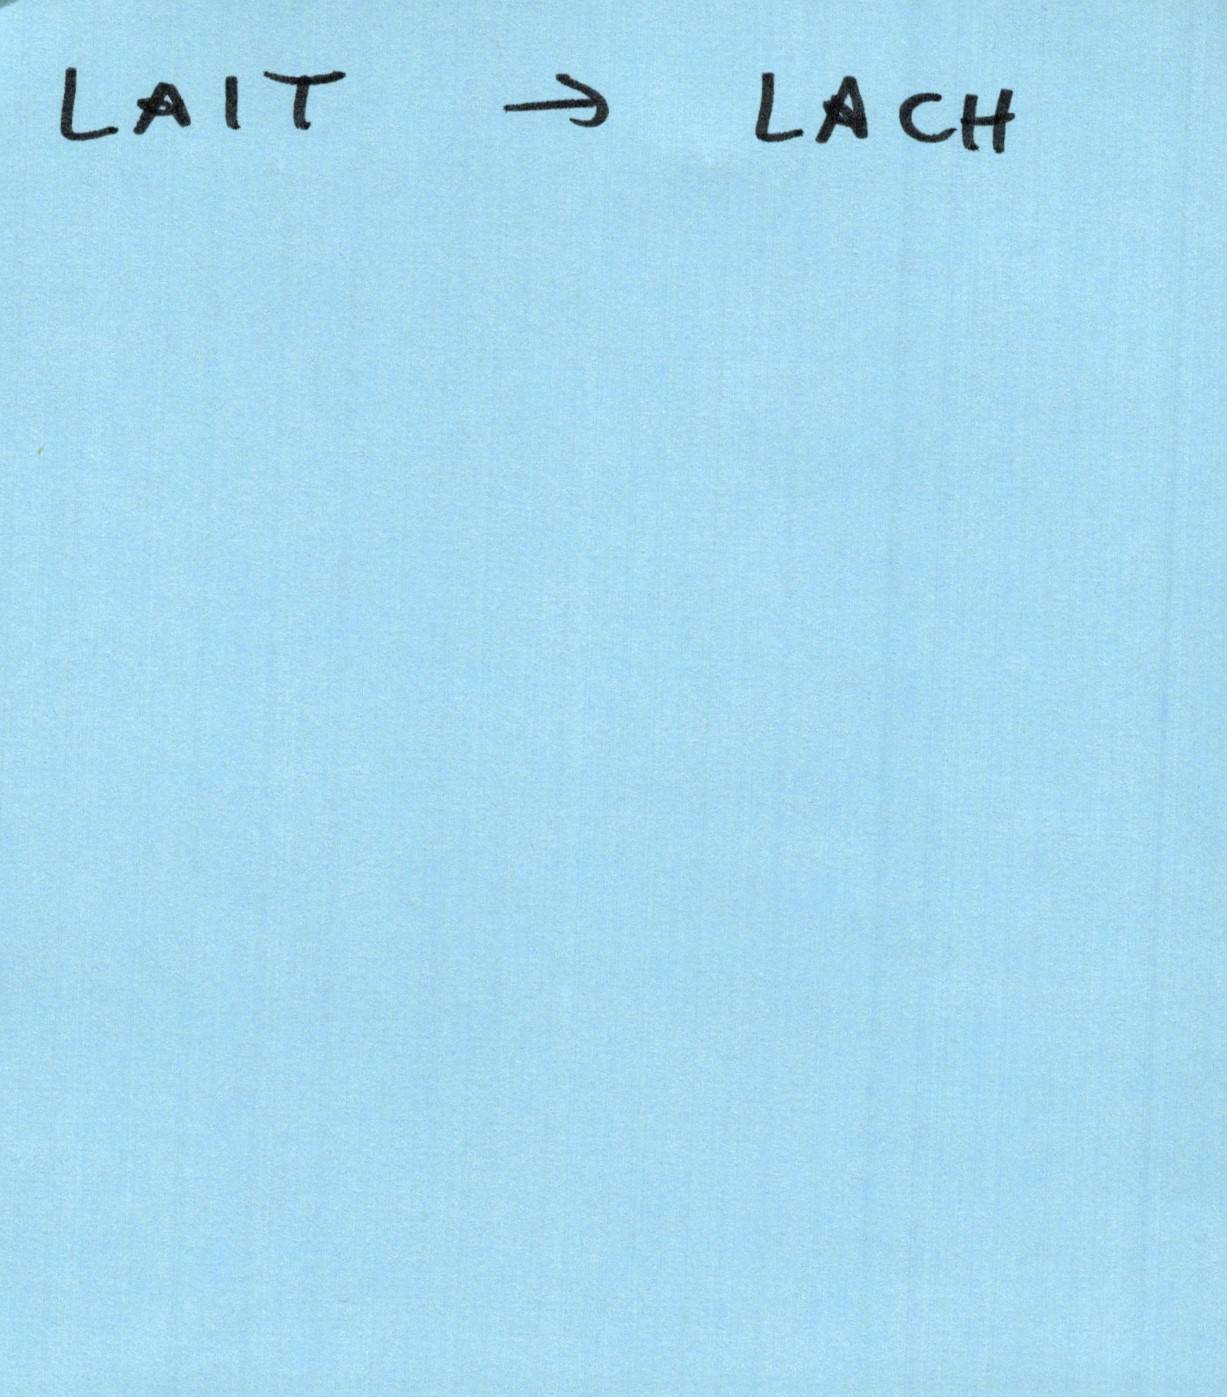 LAIT → LACH